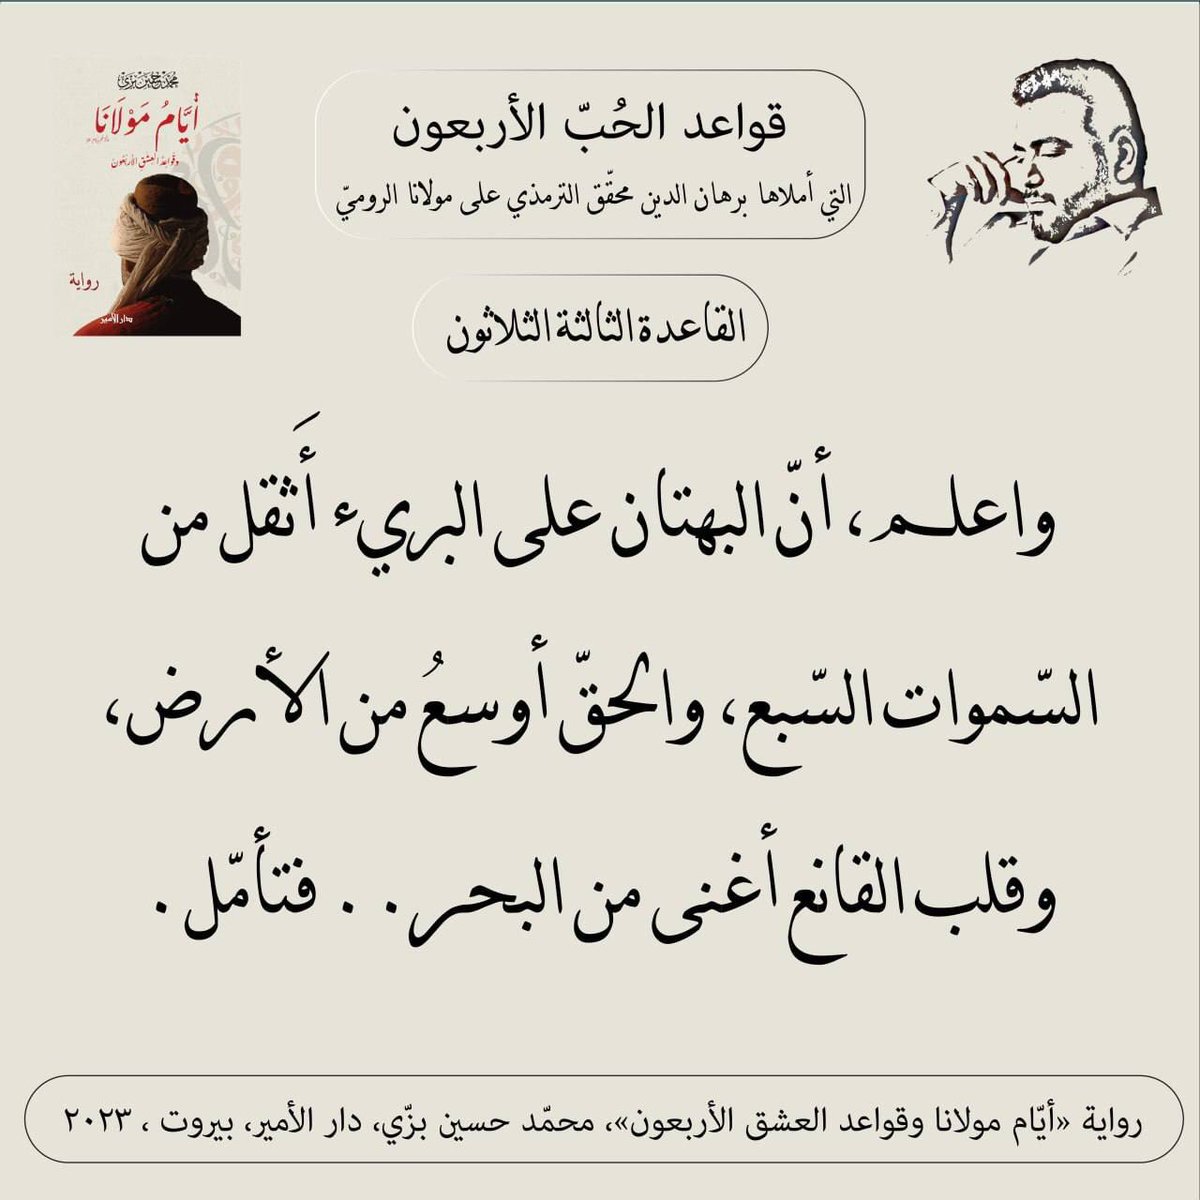 محمد حسين بزي
أيَّامُ مَوْلَانَا
وقواعد العشق الأربعون
رواية
دار الأمير
قواعد الحُبّ الأربعون
التي أملاها برهان الدين محقّق الترمذي على مولانا الروميّ
القاعدة الثالثة الثلاثون
واعلـم، أنّ البهتان على البريء أَثقل من
السّموات السّبع، والحقّ أوسعُ من الأرض،
وقلب القانع أغنى من البحر. . فتأمّل .
رواية «أيّام مولانا وقواعد العشق الأربعون»، محمّد حسين بزّي، دار الأمير، بيروت ، ٢٠٢٣